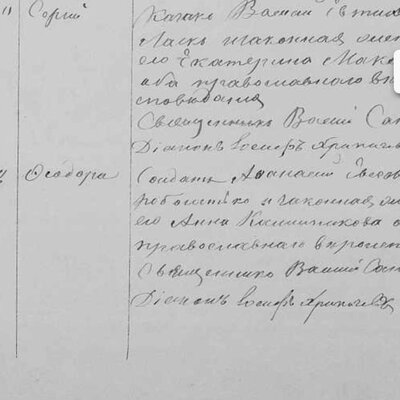 11 Сергій Казакъ Василій Евтихі
Ласкъ и законная жена
его Екатерина Мако
оба православнаго в
сповѣданія
Священникъ Василій Сап
Діаконъ Іосифъ
Ѳеодора Солдатъ Аѳанасій Евсев
и законная
его Анна Калиникова о
православнаго вѣроисп
Священникъ Василій Сап
Діаконъ Іосифъ